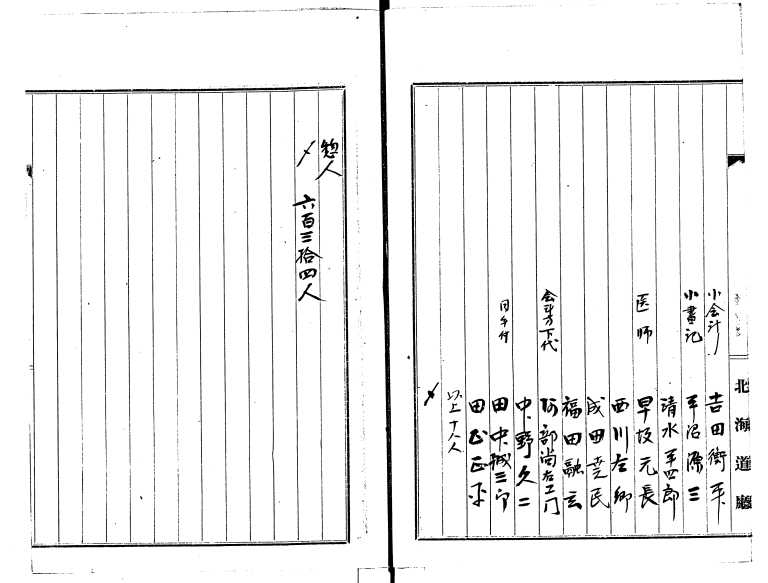 北海道廳
小会計 吉田衛平
小書記 平沼源三
清水平四郎
医師 早坂元長
西川左卿
成田
福田融玄
会計方下代 阿部尚右エ门
中野久二
同手付 田中城三郎
田正平
以上十八人
〆
惣人
〆 六百三拾四人